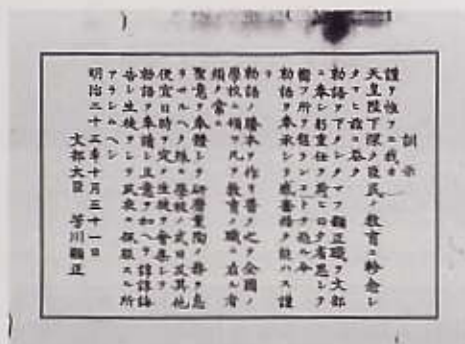 訓示
謹テ惟フニ我カ
天皇陛下深ク臣民ノ教育ニ軫念シ
タマヒ茲ニ忝ク
勅語ヲ下タシタマフ顯正職ヲ文部
ニ奉シ躬重任ヲ荷ヒ日夕省思シテ
嚮フ所ヲ愆ランコトヲ恐ル今
勅語ヲ奉承シテ感奮措ク能ハス謹
テ
勅語ノ謄本ヲ作リ普ク之ヲ全國ノ
學校ニ頒ツ凡ソ教育ノ職ニ在ル者
須ク常ニ
聖意ヲ奉體シテ研磨薫陶ノ務ヲ怠
ラサルヘク殊ニ學校ノ式日及其他
便宜日時ヲ定メ生徒ヲ會集シテ
勅語ヲ奉讀シ且意ヲ加ヘテ諄諄誨
告シ生徒ヲシテ夙夜ニ佩服スル所
アラシムヘシ
明治二十三年十月三十一日
文部大臣 芳川顯正